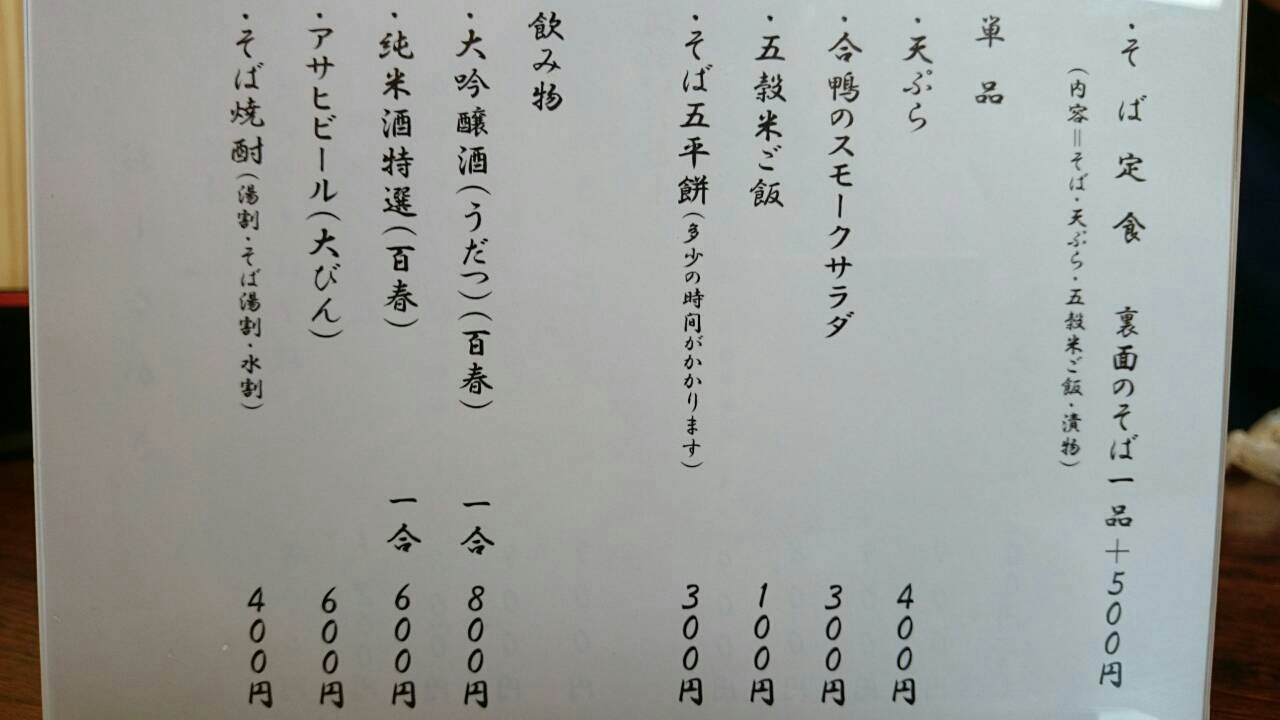 ・そば定食 裏面のそば一品＋500円
（内容＝そば・天ぷら・五穀米ご飯・漬物）
単品
・天ぷら 400円
・合鴨のスモークサラダ 300円
・五穀米ご飯 100円
・そば五平餅（多少の時間がかかります） 300円
飲み物
・大吟醸酒（うだつ）（百春） 一合 800円
・純米酒特選（百春） 一合 600円
・アサヒビール（大びん） 600円
・そば焼酎（湯割・そば湯割・水割） 400円